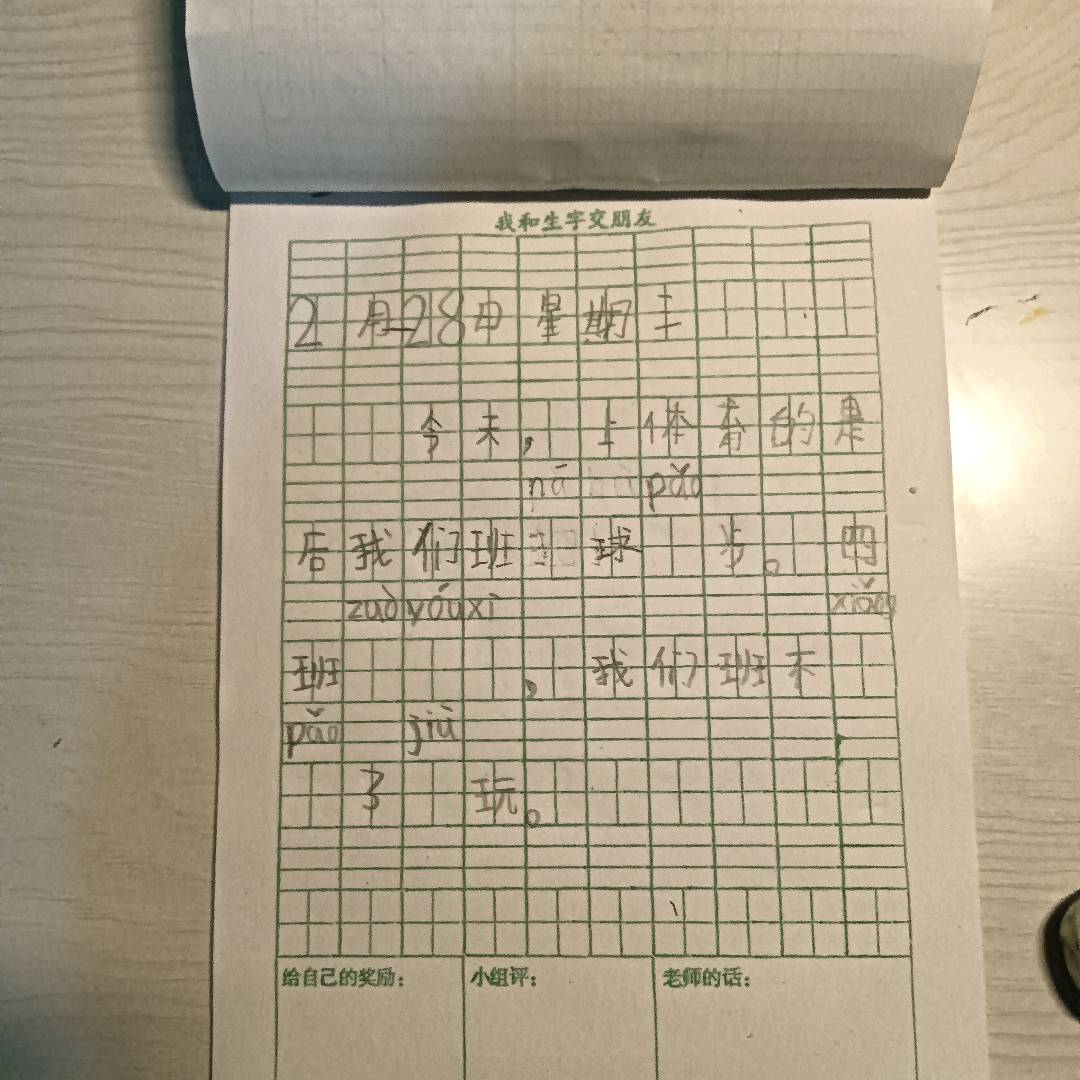 我和生字交朋友
2月28日 星期三
今天,上体育的是
nā pǎo
后我们班班球 步。四
zuò yóu xì xiǎng
班 ,我们班不
pǎo jiù
了 玩。
给自己的奖励: 小组评: 老师的话: